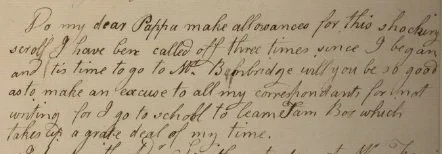 Do my dear Pappa make allowances for this shocking
scroll I have ben called off three times since I began
and tis time to go to Mr. Bembridge will you be so good
as to make an excuse to all my correspondants for not
writing for I go to school to learn Tam Bor which
takes up a grate deal of my time.